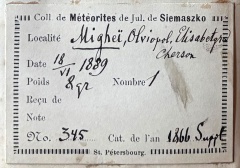 Coll. de Météorites de Jul. de Siemaszko
Localité Migheï, Olviopol, Elisabetgr.
Cherson
Date 18/VI – 1889
Poids 8 gr Nombre 1
Reçu de
Note
No. 345 Cat. de l'an 1866 Suppl
St. Pétersbourg.